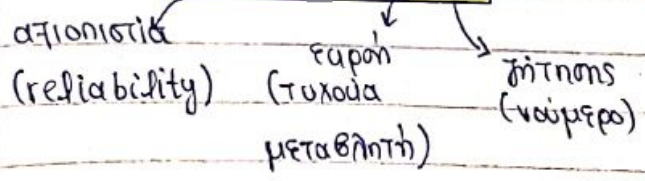 αξιοπιστία
(reliability)
εισροή
(τυχαία
μεταβλητή)
ζήτησης
(νούμερο)